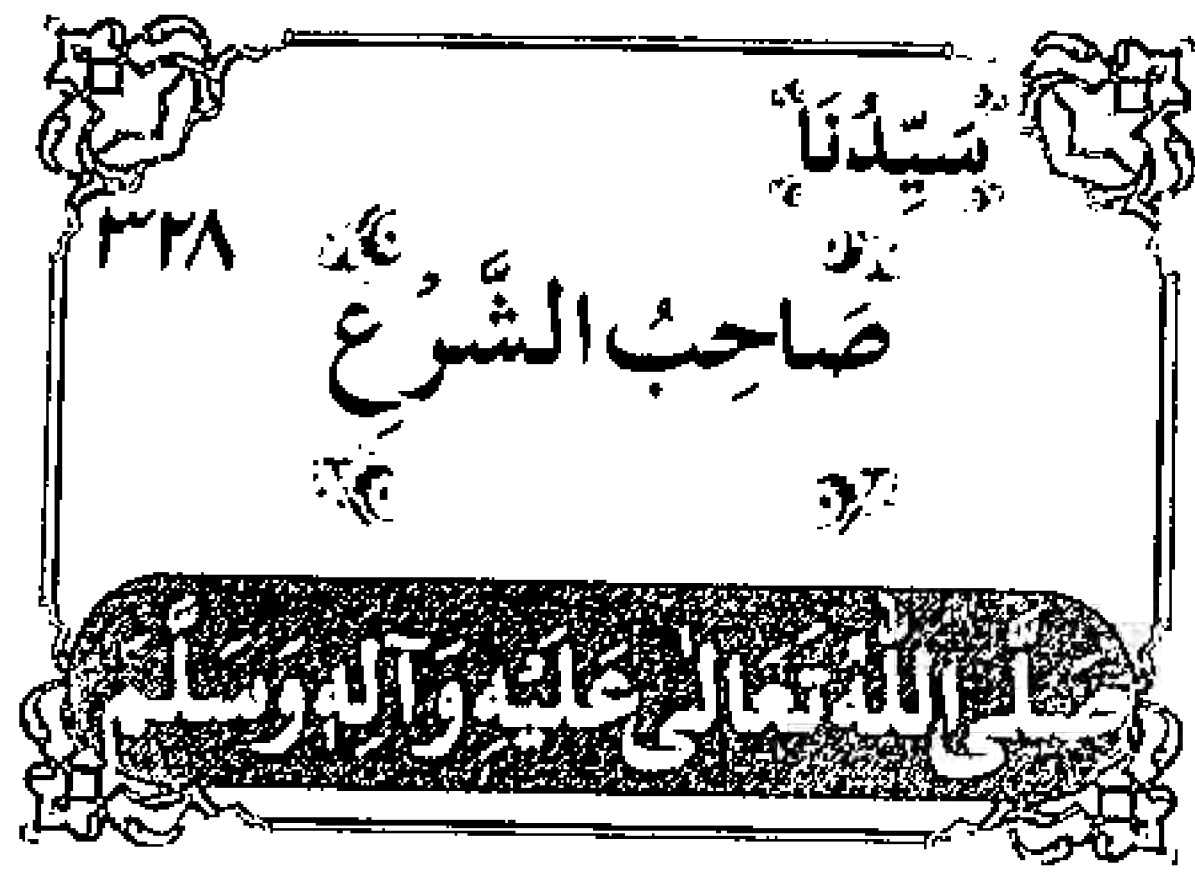 سَيِّدُنَا
٣٢٨
صَاحِبُ الشَّرْعِ
صَلَّى اللهُ تَعَالٰى عَلَيْهِ وَآلِهٖ وَسَلَّمَ